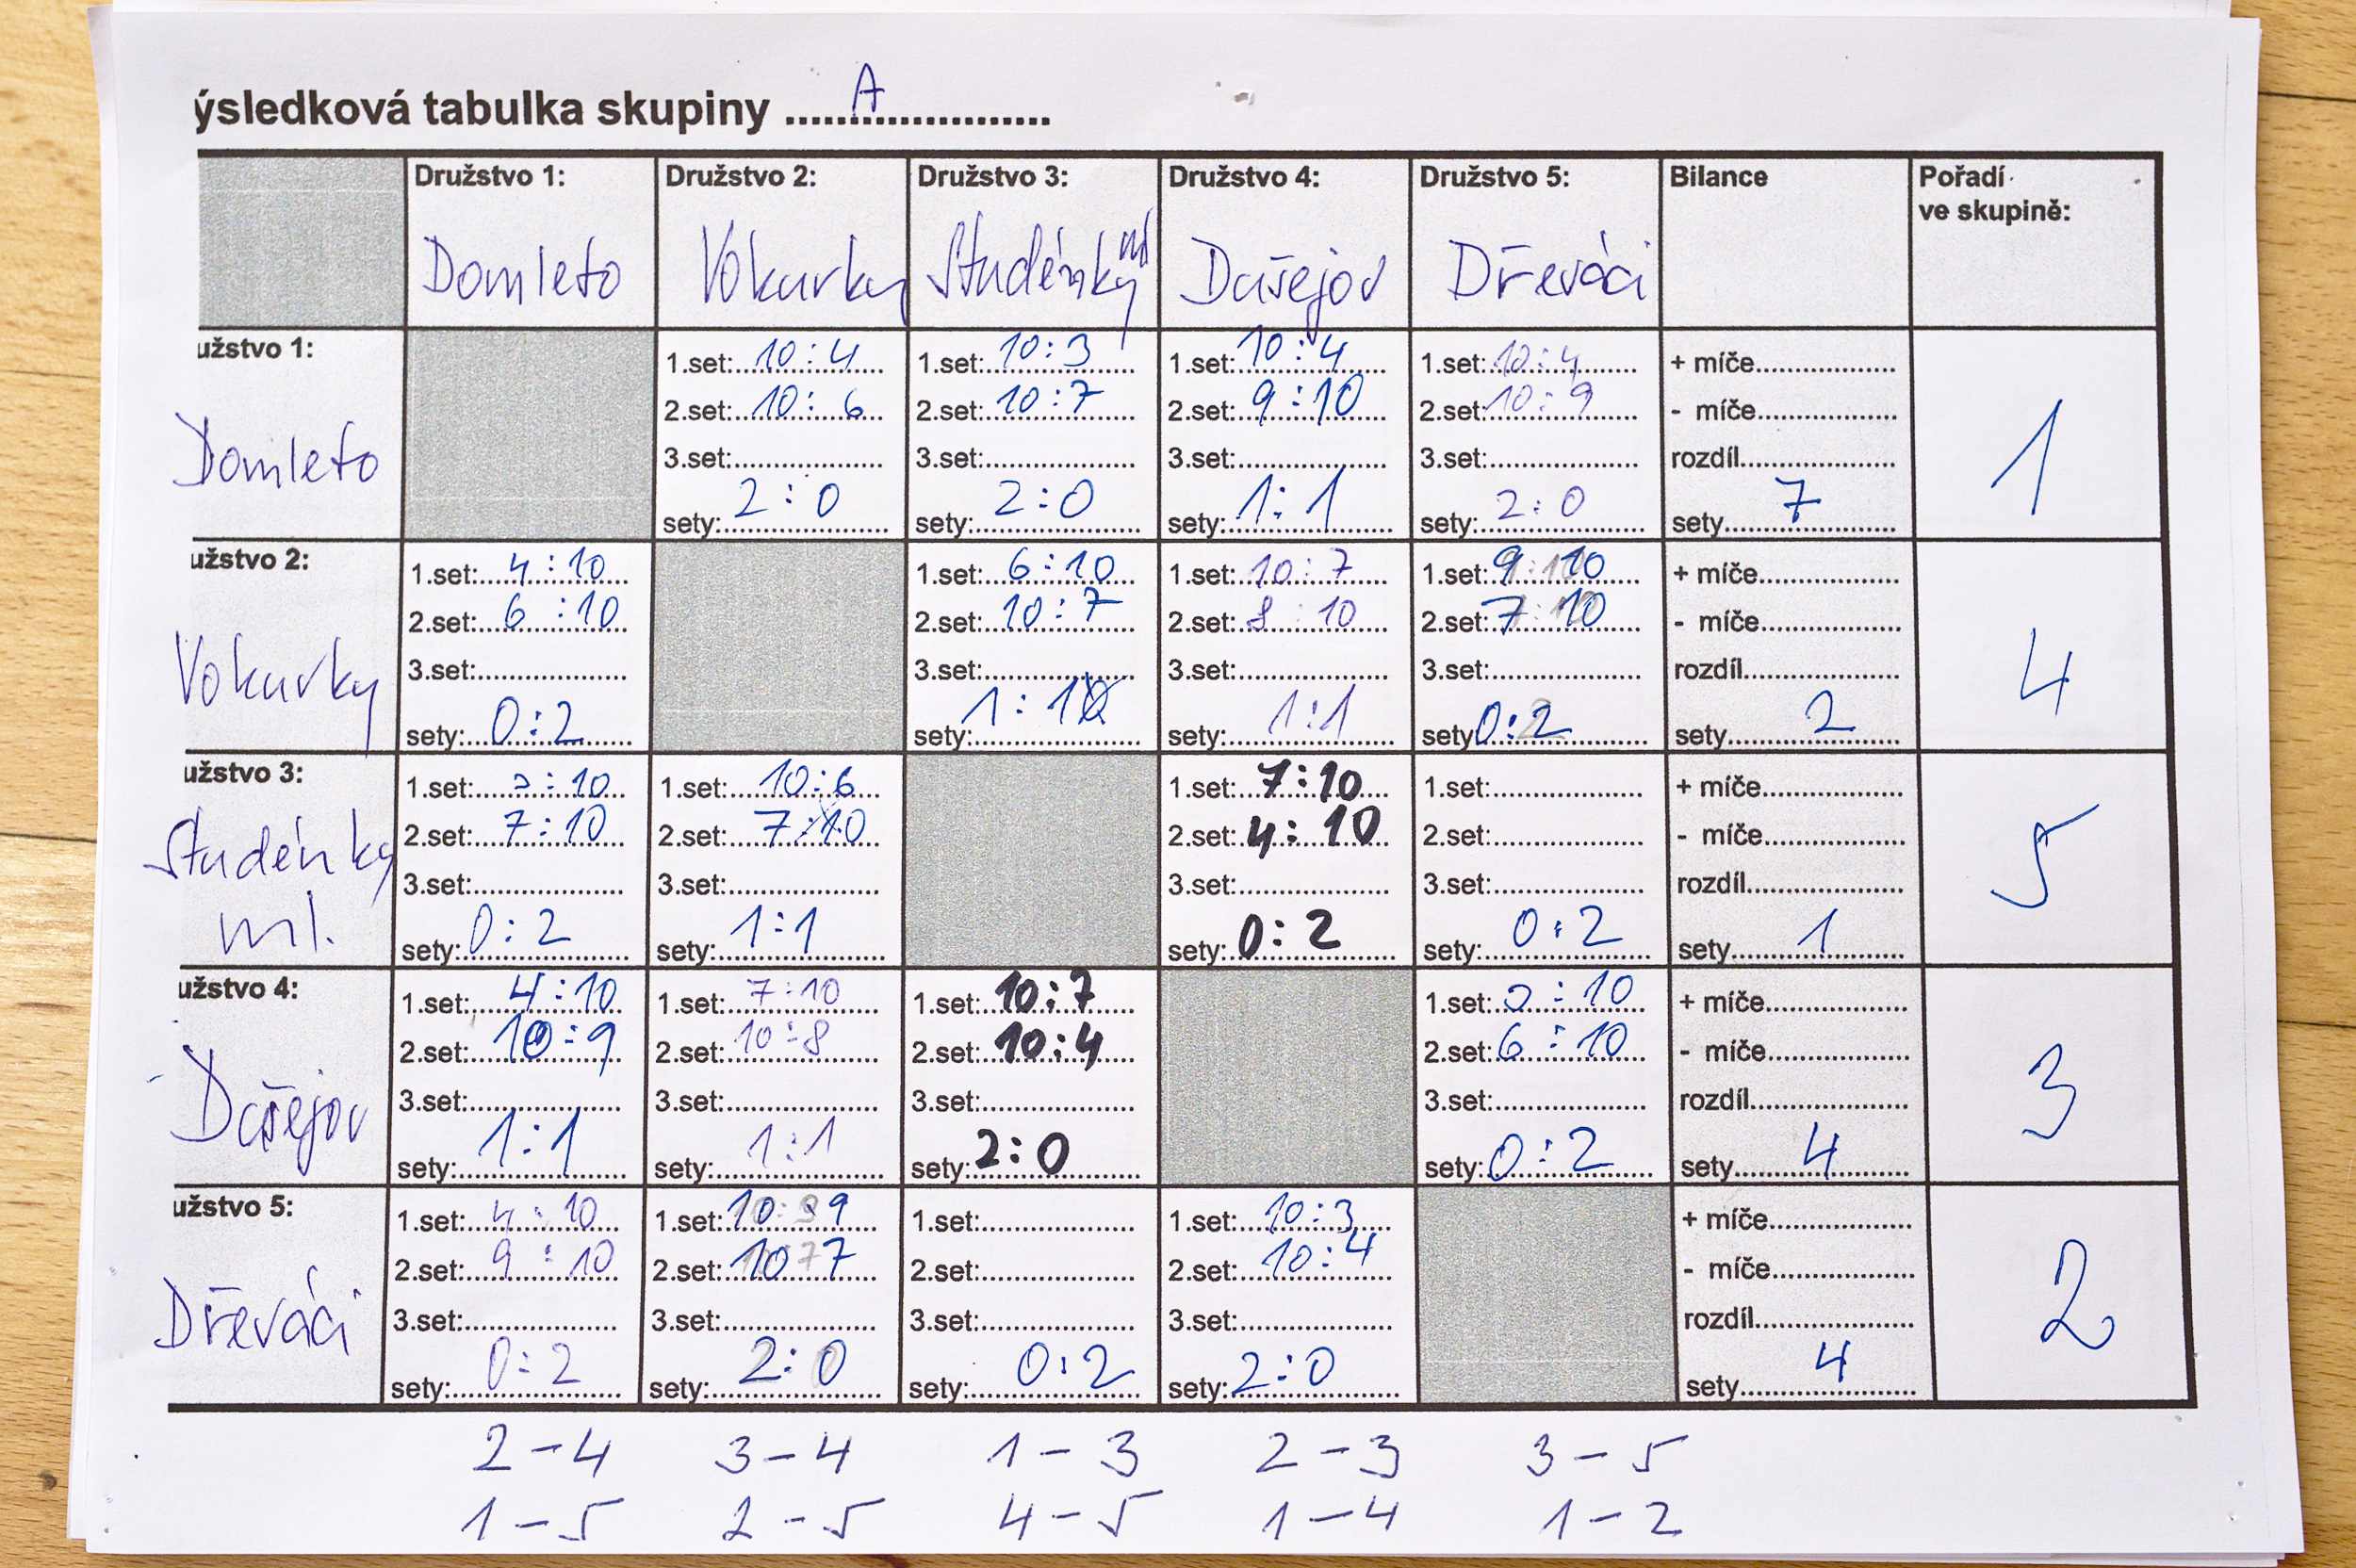 ýsledková tabulka skupiny ....A....
Družstvo 1: Družstvo 2: Družstvo 3: Družstvo 4: Družstvo 5: Bilance Pořadí
ve skupině:
Domleto Vokurky Studénky ml Dušejov Dřeváci
užstvo 1:
1.set: 10:4 1.set: 10:3 1.set: 10:4 1.set: 10:4 + míče
2.set: 10:6 2.set: 10:7 2.set: 9:10 2.set: 10:9 - míče
Domleto 3.set: 3.set: 3.set: 3.set: rozdíl 1
sety: 2:0 sety: 2:0 sety: 1:1 sety: 2:0 sety 7
užstvo 2:
1.set: 4:10 1.set: 6:10 1.set: 10:7 1.set: 9:10 + míče
2.set: 6:10 2.set: 10:7 2.set: 8:10 2.set: 7:10 - míče
Vokurky 3.set: 3.set: 3.set: 3.set: rozdíl 4
sety: 0:2 sety: 1:1 sety: 1:1 sety 0:2 sety 2
užstvo 3:
1.set: 3:10 1.set: 10:6 1.set: 7:10 1.set: + míče
2.set: 7:10 2.set: 7:10 2.set: 4:10 2.set: - míče
Studénky 3.set: 3.set: 3.set: 3.set: rozdíl 5
ml. sety: 0:2 sety: 1:1 sety: 0:2 sety: 0:2 sety 1
užstvo 4:
1.set: 4:10 1.set: 7:10 1.set: 10:7 1.set: 3:10 + míče
2.set: 10:9 2.set: 10:8 2.set: 10:4 2.set: 6:10 - míče
Dušejov 3.set: 3.set: 3.set: 3.set: rozdíl 3
sety: 1:1 sety: 1:1 sety: 2:0 sety: 0:2 sety 4
užstvo 5:
1.set: 4:10 1.set: 10:9 1.set: 1.set: 10:3 + míče
2.set: 9:10 2.set: 10 7 2.set: 2.set: 10:4 - míče
Dřeváci 3.set: 3.set: 3.set: 3.set: rozdíl 2
sety: 0:2 sety: 2:0 sety: 0:2 sety: 2:0 sety 4
2-4 3-4 1-3 2-3 3-5
1-5 2-5 4-5 1-4 1-2